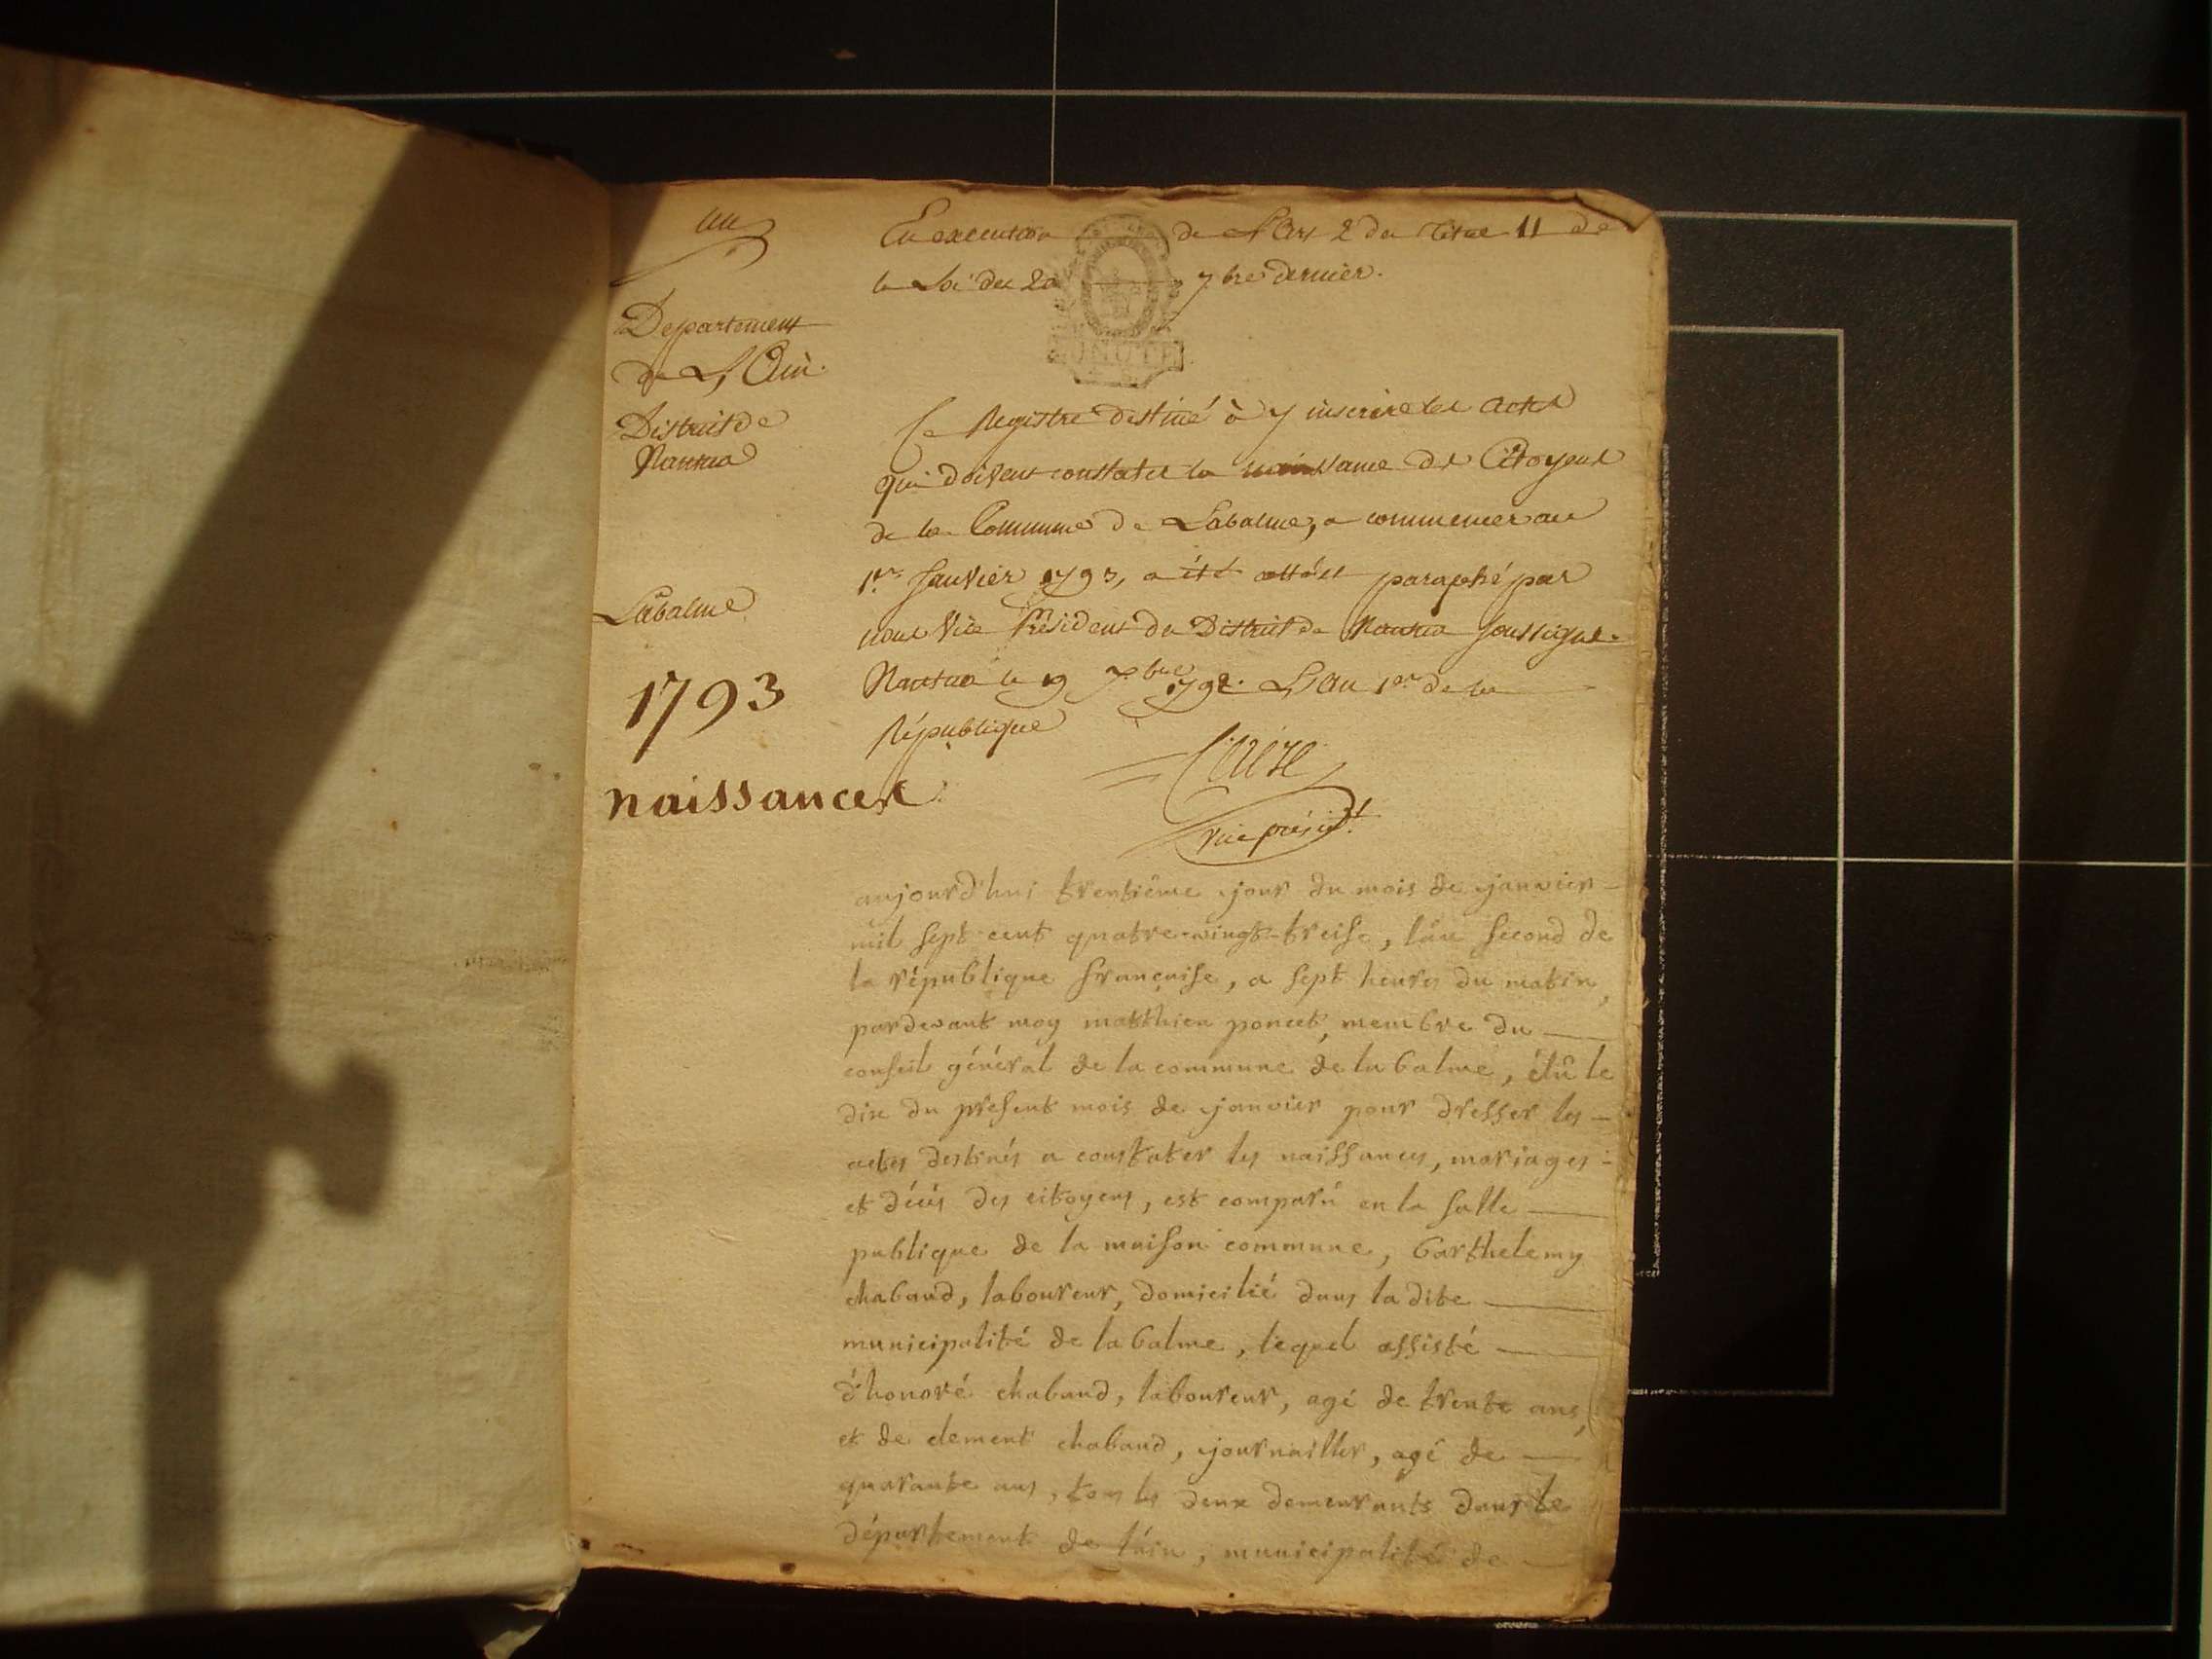 un
En execution de L'Art 2 du Titre 11 de
la Loi du 20 7bre dernier.
MINUTE
Departement
de L'Ain.
District de
Nantua
Ce Registre destiné à y inscrire les actes
qui doivent constater la naissance des Citoyens
de la Commune de Labalme, a commencer au
1er Janvier 1793, a été cotté et paraphé par
nous Vice Président du District de Nantua soussigné.
Labalme
Nantua le 19 Xbre 1792. L'an 1er de la
République
1793
naissances
vice présidt
aujourd'hui trentième jour du mois de janvier
mil sept cent quatre-vingt-treise, l'an second de
la république françoise, a sept heures du matin,
pardevant moy matthieu poncet, membre du
conseil général de la commune de la balme, élû le
dix du present mois de janvier pour dresser les
actes destinés a constater les naissances, mariages
et décès des citoyens, est comparû en la salle
publique de la maison commune, barthelemy
chabaud, laboureur, domicilié dans la dite
municipalité de la balme, lequel assisté
d'honoré chabaud, laboureur, agé de trente ans,
et de clement chabaud, journaillier, agé de
quarante ans, tous les deux demeurants dans le
département de l'ain, municipalité de